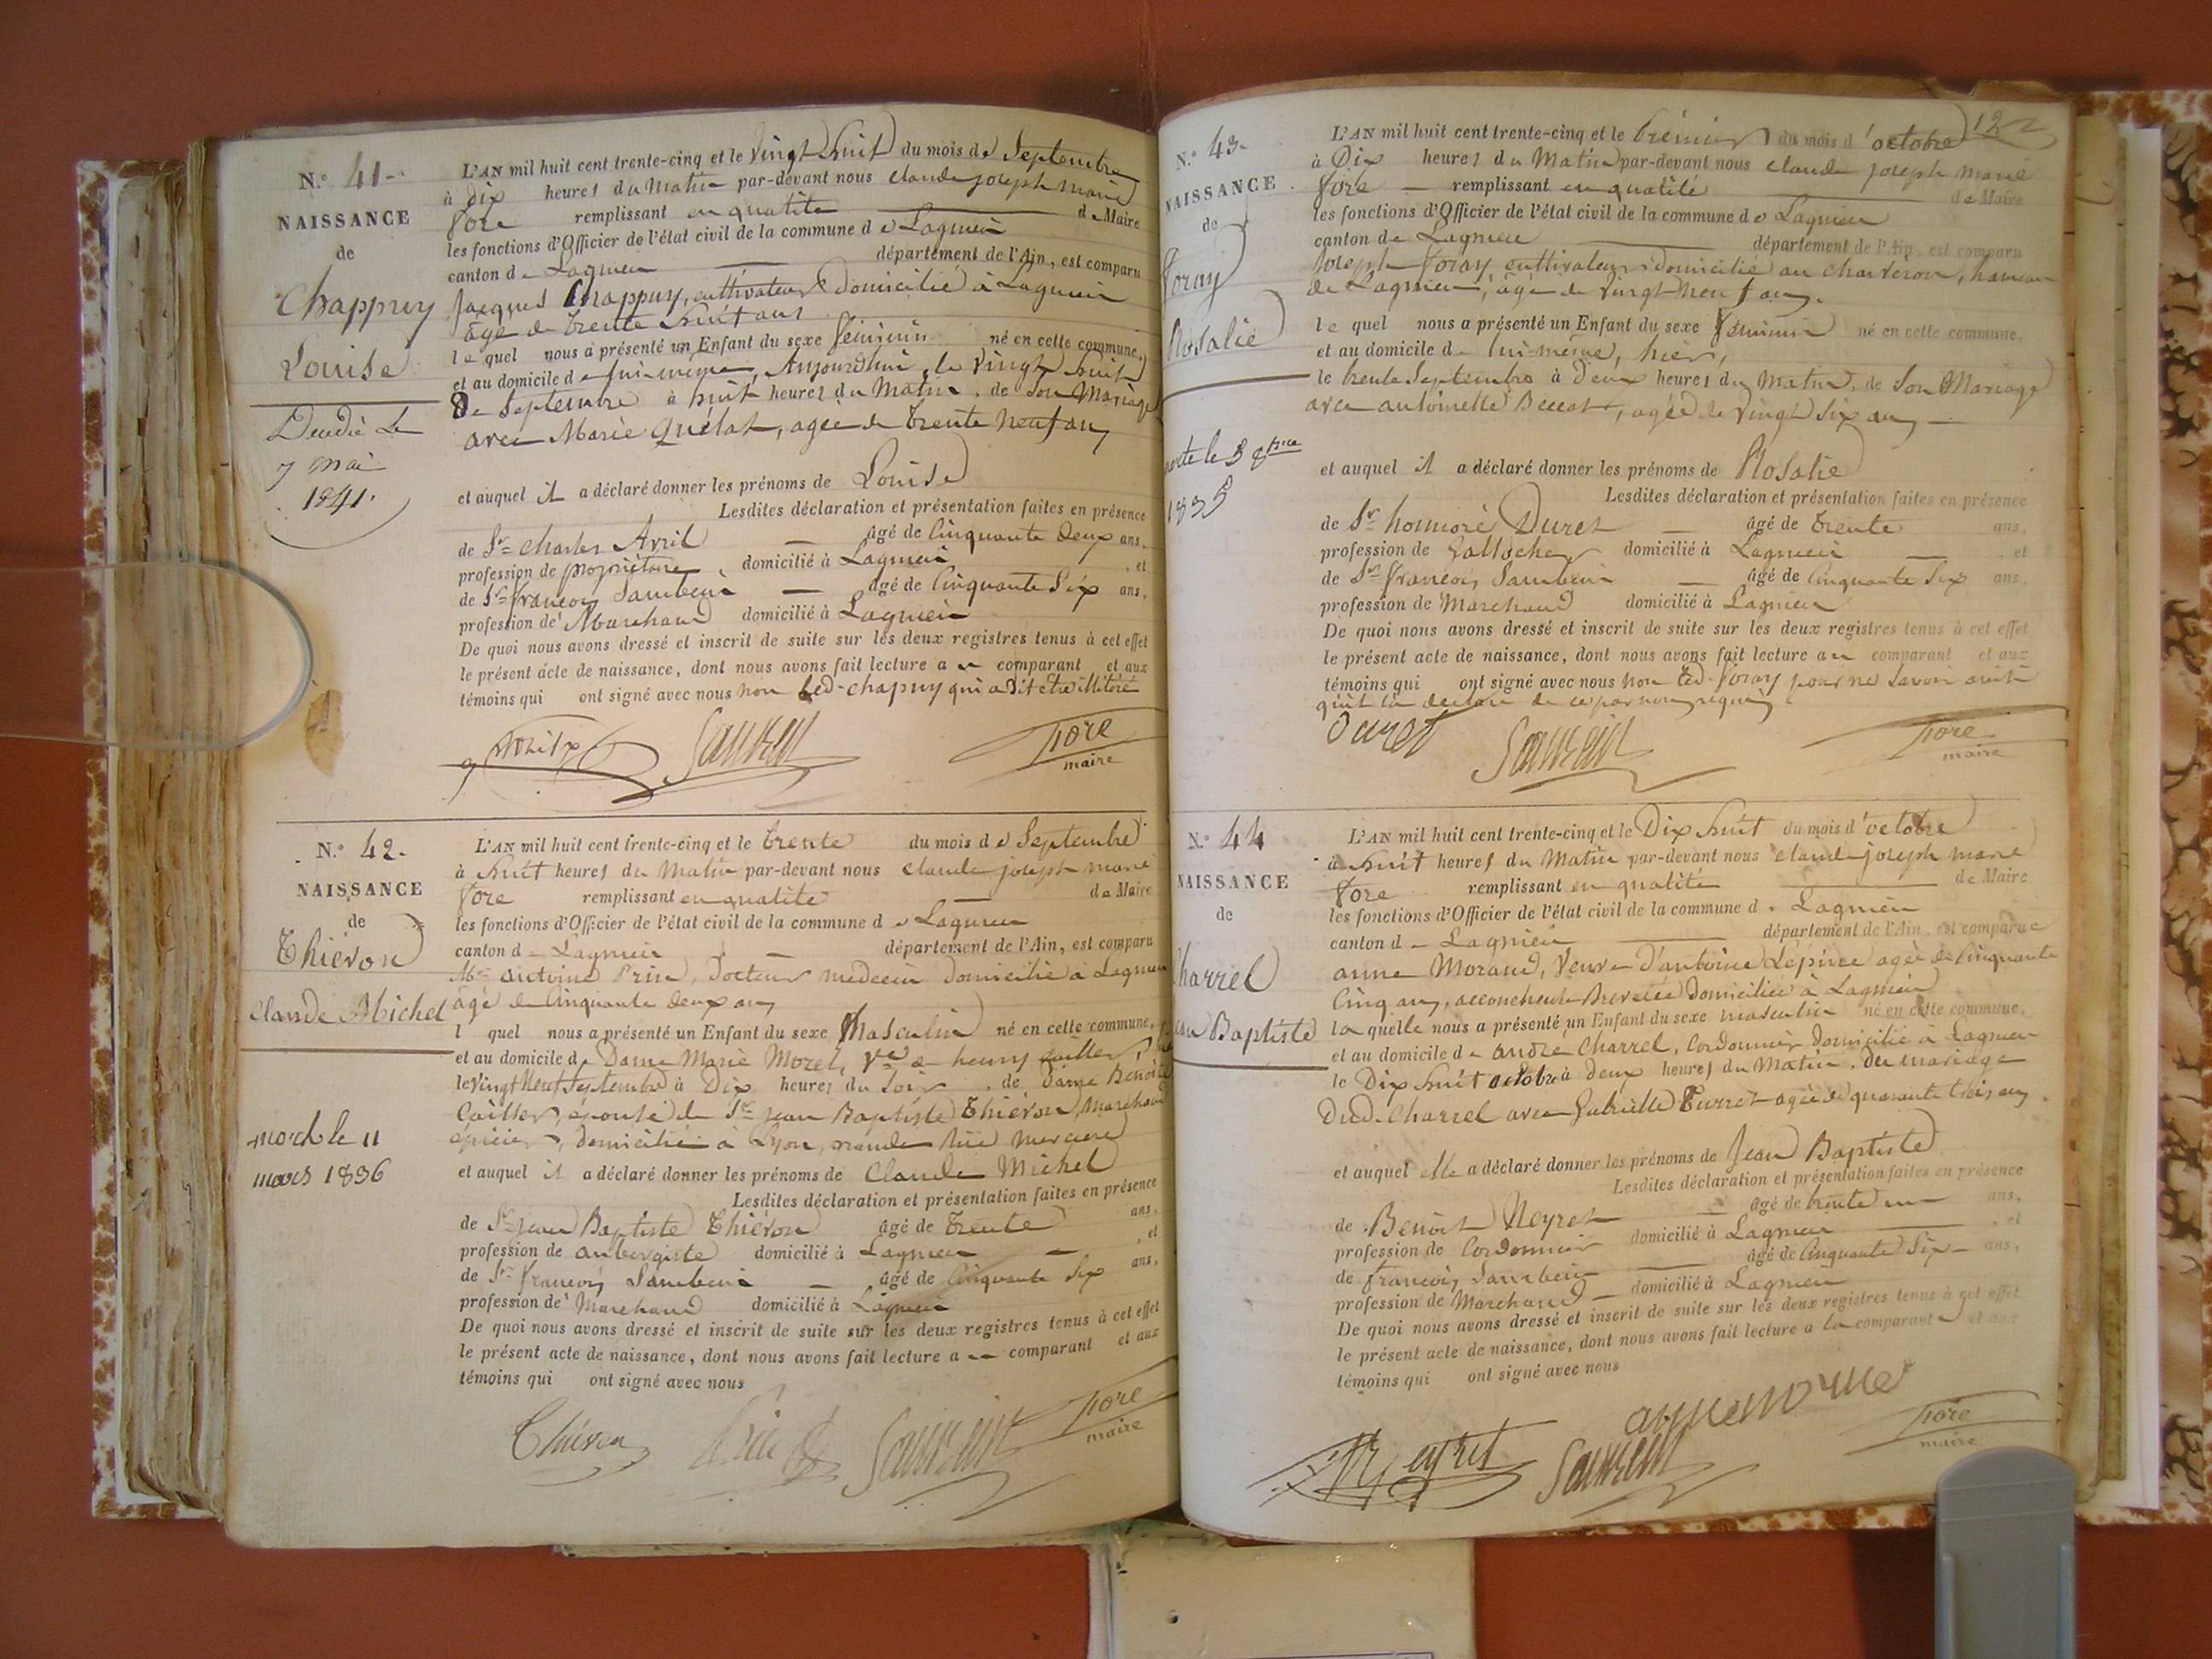 N.° 41.
NAISSANCE
de
Chappuy
Louise
Décédée Le
7 mai
1841.
L'AN mil huit cent trente-cinq et le vingt huit du mois de Septembre
à Dix heures du Matin par-devant nous Claude joseph marie
fore remplissant en qualité de Maire
les fonctions d'Officier de l'état civil de la commune de Lagnieu
canton de Lagnieu département de l'Ain, est comparu
Jacques Chappuy, cultivateur domicilié à Lagnieu
âgé de trente huit ans
lequel nous a présenté un Enfant du sexe féminin né en cette commune,
et au domicile de lui-même, Aujourd'hui, le vingt huit
De Septembre à huit heures du Matin, de Son Mariage
avec Marie Quélat, agée de trente neuf ans
et auquel il a déclaré donner les prénoms de Louise
Lesdites déclaration et présentation faites en présence
de Sr Charles Avril âgé de Cinquante Deux ans,
profession de propriétaire, domicilié à Lagnieu, et
de Sr françois Sambein âgé de Cinquante Six ans,
profession de Marchand domicilié à Lagnieu
De quoi nous avons dressé et inscrit de suite sur les deux registres tenus à cet effet
le présent acte de naissance, dont nous avons fait lecture au comparant et aux
témoins qui ont signé avec nous non led. chapuy qui a Dit être illitéré
fore
maire
N.° 42.
NAISSANCE
de
Thiévon
Claude Michel
mort le 11
mars 1836
L'AN mil huit cent trente-cinq et le trente du mois de Septembre
à huit heures du Matin par-devant nous Claude joseph marie
fore remplissant en qualité de Maire
les fonctions d'Officier de l'état civil de la commune de Lagnieu
canton de Lagnieu département de l'Ain, est comparu
Mr antoine Prin, Docteur medecin domicilié à Lagnieu
âgé de Cinquante deux ans
l quel nous a présenté un Enfant du sexe Masculin né en cette commune,
et au domicile de Dame Marie Morel, Ve de henry Cailler,
le vingt Neuf Septembre à Dix heures du Soir, de Dame Benoite
Cailler, épouse de Sr jean Baptiste Thiévon, Marchand
épicier, domicilié à Lyon, grande rüe merciere
et auquel il a déclaré donner les prénoms de Claude Michel
Lesdites déclaration et présentation faites en présence
de Sr jean Baptiste Thiévon âgé de trente ans,
profession de aubergiste domicilié à Lagnieu, et
de Sr françois Sambein âgé de Cinquante Six ans,
profession de Marchand domicilié à Lagnieu
De quoi nous avons dressé et inscrit de suite sur les deux registres tenus à cet effet
le présent acte de naissance, dont nous avons fait lecture au comparant et aux
témoins qui ont signé avec nous
Thiévon
fore
maire
12
N.° 43.
NAISSANCE
de
foray
Rosalie
morte le 3 8bre
1835
L'AN mil huit cent trente-cinq et le premier du mois d'octobre
à Dix heures du Matin par-devant nous claude joseph marie
fore remplissant en qualité de Maire
les fonctions d'Officier de l'état civil de la commune de Lagnieu
canton de Lagnieu département de l'Ain, est comparu
Joseph foray, cultivateur domicilié au charveron, hameau
de Lagnieu, âgé de vingt neuf ans.
lequel nous a présenté un Enfant du sexe féminin né en cette commune,
et au domicile de lui-même, hier,
le trente Septembre à Deux heures du Matin, de Son Mariage
avec antoinette Beccat, agée de vingt Six ans
et auquel il a déclaré donner les prénoms de Rosalie
Lesdites déclaration et présentation faites en présence
de Sr honnoré Duret âgé de trente ans,
profession de Gallocher domicilié à Lagnieu, et
de Sr françois Sambein âgé de Cinquante Six ans,
profession de Marchand domicilié à Lagnieu
De quoi nous avons dressé et inscrit de suite sur les deux registres tenus à cet effet
le présent acte de naissance, dont nous avons fait lecture au comparant et aux
témoins qui ont signé avec nous non led. foray pour ne savoir ainsi
qu'il l'a déclaré de ce par nous requis
Duret
fore
maire
N.° 44
NAISSANCE
de
Charrel
Jean Baptiste
L'AN mil huit cent trente-cinq et le Dix huit du mois d'octobre
à huit heures du Matin par-devant nous claude joseph marie
fore remplissant en qualité de Maire
les fonctions d'Officier de l'état civil de la commune de Lagnieu
canton de Lagnieu département de l'Ain, est comparue
anne Morand, veuve D'antoine Lépine agée de Cinquante
Cinq ans, accoucheuse Brevetée Domiciliée à Lagnieu
laquelle nous a présenté un Enfant du sexe masculin né en cette commune,
et au domicile de andré Charrel, Cordonnier Domicilié à Lagnieu
le Dix huit octobre à Deux heures du Matin, du mariage
Dud. Charrel avec Gabrielle Turret agée de quarante trois ans.
et auquel elle a déclaré donner les prénoms de Jean Baptiste
Lesdites déclaration et présentation faites en présence
de Benoit Neyret âgé de trente un ans,
profession de Cordonnier domicilié à Lagnieu, et
de françois Sambein âgé de Cinquante Six ans,
profession de Marchand domicilié à Lagnieu
De quoi nous avons dressé et inscrit de suite sur les deux registres tenus à cet effet
le présent acte de naissance, dont nous avons fait lecture à la comparante et aux
témoins qui ont signé avec nous
Neyret
fore
maire